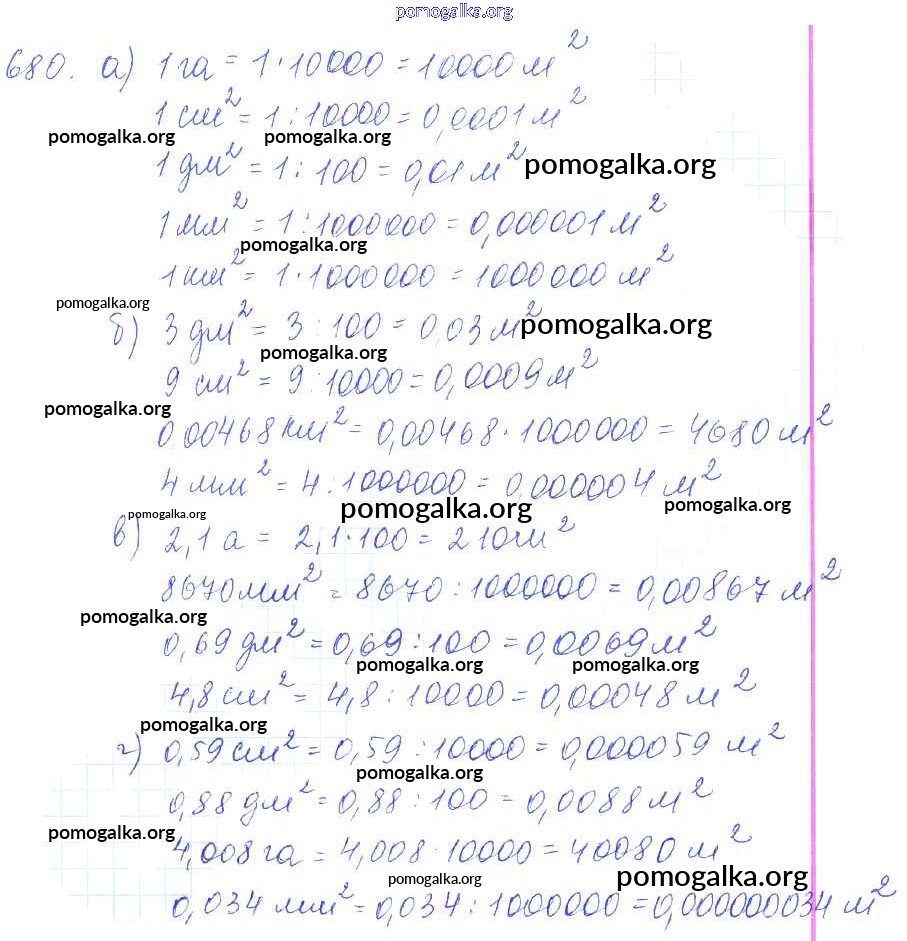 pomogalka.org
680. а) 1 га = 1 · 10000 = 10000 м²
1 см² = 1 : 10000 = 0,0001 м²
pomogalka.org pomogalka.org
1 дм² = 1 : 100 = 0,01 м² pomogalka.org
1 мм² = 1 : 1000000 = 0,000001 м²
pomogalka.org
1 км² = 1 · 1000000 = 1000000 м²
pomogalka.org
б) 3 дм² = 3 : 100 = 0,03 м² pomogalka.org
pomogalka.org
9 см² = 9 : 10000 = 0,0009 м²
pomogalka.org
0,00468 км² = 0,00468 · 1000000 = 4680 м²
4 мм² = 4 : 1000000 = 0,000004 м²
pomogalka.org pomogalka.org
pomogalka.org
в) 2,1 а = 2,1 · 100 = 210 м²
8670 мм² = 8670 : 1000000 = 0,00867 м²
pomogalka.org
0,69 дм² = 0,69 : 100 = 0,0069 м²
pomogalka.org pomogalka.org
4,8 см² = 4,8 : 10000 = 0,00048 м²
pomogalka.org
г) 0,59 см² = 0,59 : 10000 = 0,000059 м²
pomogalka.org
0,88 дм² = 0,88 : 100 = 0,0088 м²
pomogalka.org
4,008 га = 4,008 · 10000 = 40080 м²
pomogalka.org pomogalka.org
0,034 мм² = 0,034 : 1000000 = 0,000000034 м²